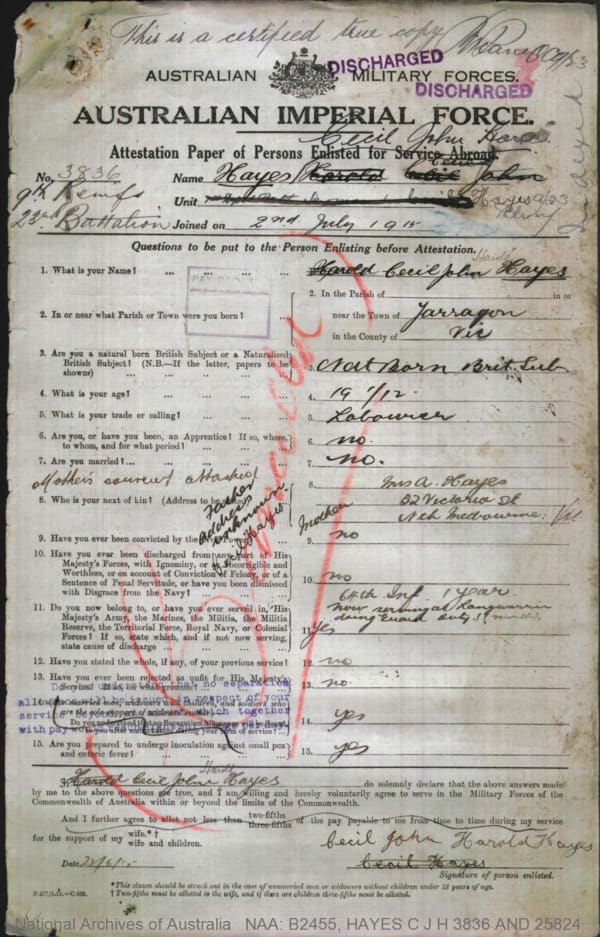 This is a certified true copy
DISCHARGED
DISCHARGED
AUSTRALIAN MILITARY FORCES.
AUSTRALIAN IMPERIAL FORCE.
Cecil John Harold
Attestation Paper of Persons Enlisted for Service Abroad.
No. 3836 Name Hayes Harold Cecil John
9th Reinfs Unit Cecil Hayes
23rd Battalion Joined on 2nd July 1915
Indexed
Questions to be put to the Person Enlisting before Attestation.
1. What is your Name? ... 1. Harold Cecil John Hayes
PAY BOOK
2. In or near what Parish or Town were you born? ... 2. In the Parish of in or
near the Town of Yarragon
in the County of Vic
3. Are you a natural born British Subject or a Naturalized
British Subject? (N.B.—If the latter, papers to be
shown) 3. Nat Born Brit Sub
4. What is your age? 4. 19 1/12
5. What is your trade or calling? 5. Labourer
6. Are you, or have you been, an Apprentice? If so, where,
to whom, and for what period? 6. no.
7. Are you married? ... 7. no.
Mother's consent attached
8. Who is your next of kin? (Address to be stated) 8. Mrs A. Hayes
Mother 52 Victoria St
Nth Melbourne. Vic
Father
address
unknown
Cecil Hayes
9. Have you ever been convicted by the Civil Power? 9. no
10. Have you ever been discharged from any part of His
Majesty's Forces, with Ignominy, or as Incorrigible and
Worthless, or on account of Conviction of Felony, or of a
Sentence of Penal Servitude, or have you been dismissed
with Disgrace from the Navy? 10. no
11. Do you now belong to, or have you ever served in, His
Majesty's Army, the Marines, the Militia, the Militia
Reserve, the Territorial Force, Royal Navy, or Colonial
Forces? If so, state which, and if not now serving,
state cause of discharge 11. Yes
64th Inf 1 year.
now serving at Langwarrin
doing guard duty
12. Have you stated the whole, if any, of your previous service? 12. no
13. Have you ever been rejected as unfit for His Majesty's
Service? If so, on what grounds? 13. no.
that no separation
be issued in respect of your
together
with pay
14. 14. yes
15. Are you prepared to undergo inoculation against small pox
and enteric fever? 15. yes
I, Harold Cecil John Hayes do solemnly declare that the above answers made
by me to the above questions are true, and I am willing and hereby voluntarily agree to serve in the Military Forces of the
Commonwealth of Australia within or beyond the limits of the Commonwealth.
And I further agree to allot not less than two-fifths
three-fifths of the pay payable to me from time to time during my service
for the support of my wife.*†
wife and children.
Cecil John Harold Hayes
Date
Cecil Hayes
Signature of person enlisted.
*This clause should be struck out in the case of unmarried men or widowers without children under 18 years of age.
†Two-fifths must be allotted to the wife, and if there are children three-fifths must be allotted.
National Archives of Australia NAA: B2455, HAYES C J H 3836 AND 25824